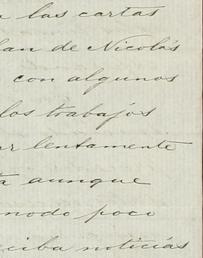 a las cartas
lan de Nicolás
con algunos
los trabajos
ar lentamente
tá aunque
modo poco
eciba noticias